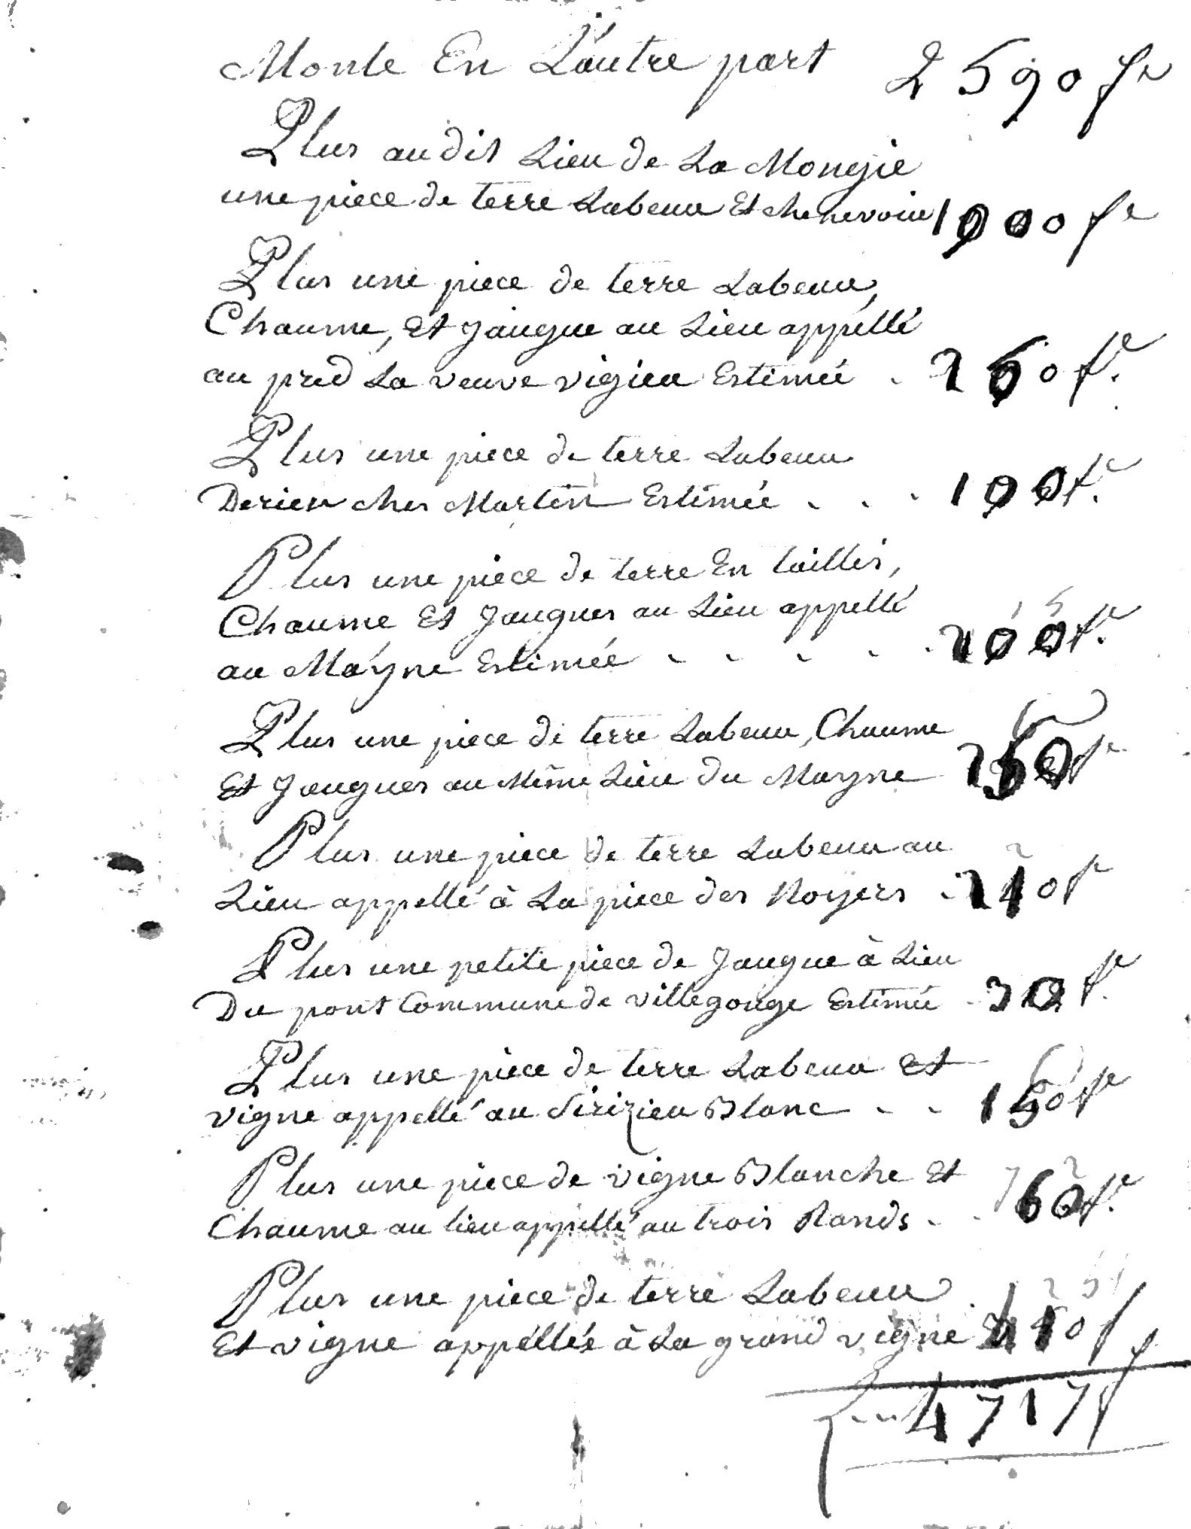 Monte En L'autre part 2590 fr
Plus au dit Lieu de La Mongie
une piece de terre Labeur Et chenevoire 1000 fr
Plus une piece de terre Labeur,
Chaume, Et Jaugue au Lieu appellé
au pred La veuve vigieu Estimée . 260 fr.
Plus une piece de terre Labeur
Derieu ches Martin Estimée . . . 100 fr.
Plus une piece de terre En taillis,
Chaume Et Jaugues au Lieu appellé
au Mayne Estimée . . . . .
Plus une piece de terre Labeur, Chaume
Et Jaugues au Même Lieu du Mayne
Plus une piece de terre Labeur au
Lieu appellé à La piece des Noyers .
Plus une petite piece de Jaugue à Lieu
Du pont Commune de villegouge Estimée 30 fr.
Plus une piece de terre Labeur Et
vigne appellé au Blanc . . 150 fr
Plus une piece de vigne Blanche Et
Chaume au lieu appellé au trois Rands . . 60 fr.
Plus une piece de terre Labeur
Et vigne appéllée à La grand vigne
4717 f